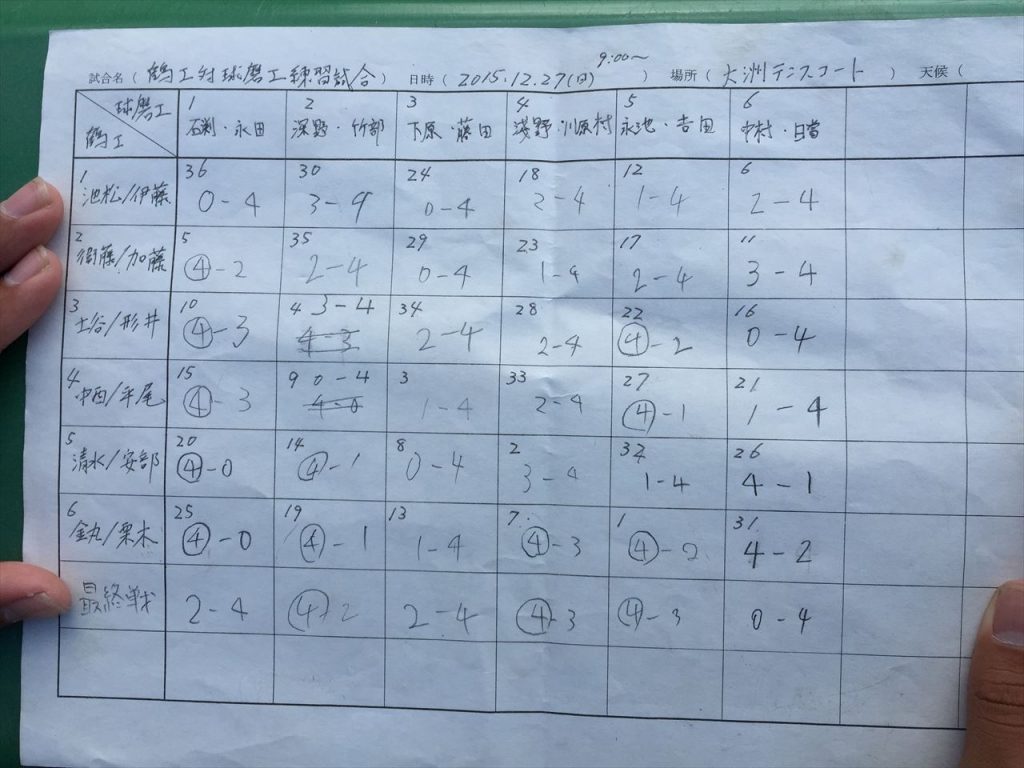 9:00〜
試合名（ 鶴工対球磨工練習試合 ） 日時（ 2015.12.27(日) ） 場所（ 大洲テニスコート ） 天候（
球磨工 1 2 3 4 5 6
鶴工 永田 深野・竹部 下原・藤田 淺野・川原村 永池・吉田 中村・
1 36 30 24 18 12 6
池松/伊藤 0-4 3-4 0-4 2-4 1-4 2-4
2 5 35 29 23 17 11
衛藤/加藤 ④-2 2-4 0-4 1-4 2-4 3-4
3 10 4 3-4 34 28 22 16
土谷/形井 ④-3 4-3 2-4 2-4 ④-2 0-4
4 15 9 0-4 3 33 27 21
中西/平尾 ④-3 4-0 1-4 2-4 ④-1 1-4
5 20 14 8 2 32 26
清水/安部 ④-0 ④-1 0-4 3-4 1-4 4-1
6 25 19 13 7 1 31
金丸/栗木 ④-0 ④-1 1-4 ④-3 ④-2 4-2
最終戦 2-4 ④-2 2-4 ④-3 ④-3 0-4